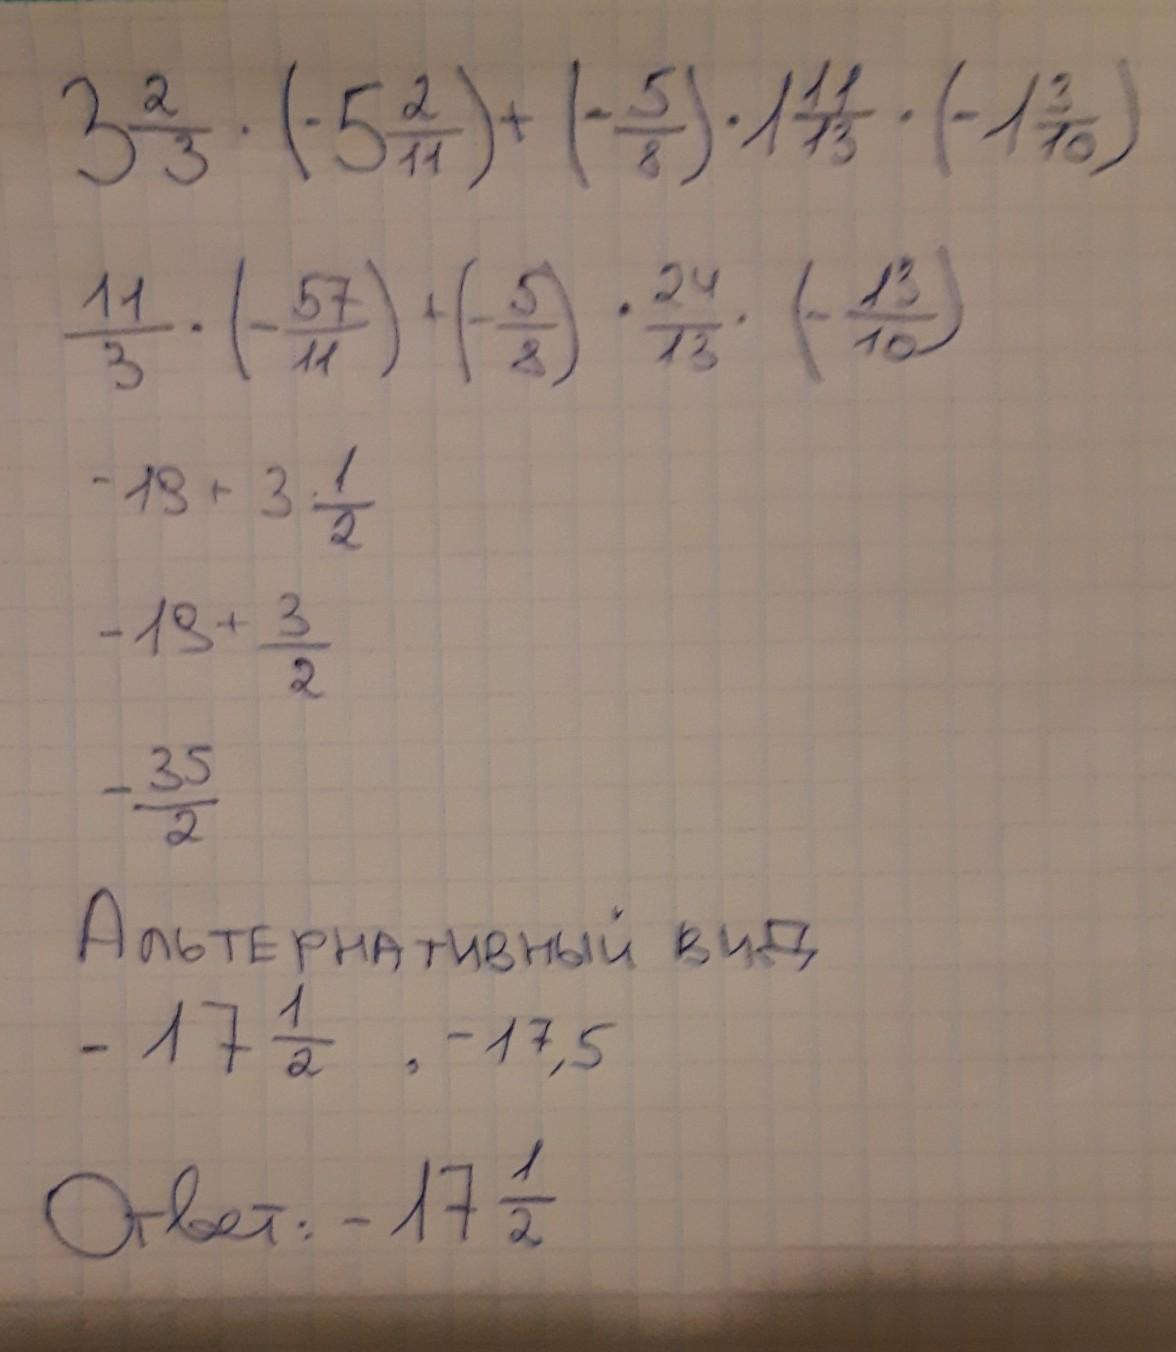 3 2/3 · (-5 2/11) + (-5/8) · 1 11/13 · (-1 3/10)
11/3 · (-57/11) + (-5/8) · 24/13 · (-13/10)
-19 + 3 · 1/2
-19 + 3/2
-35/2
Альтернативный вид
-17 1/2 , -17,5
Ответ: -17 1/2